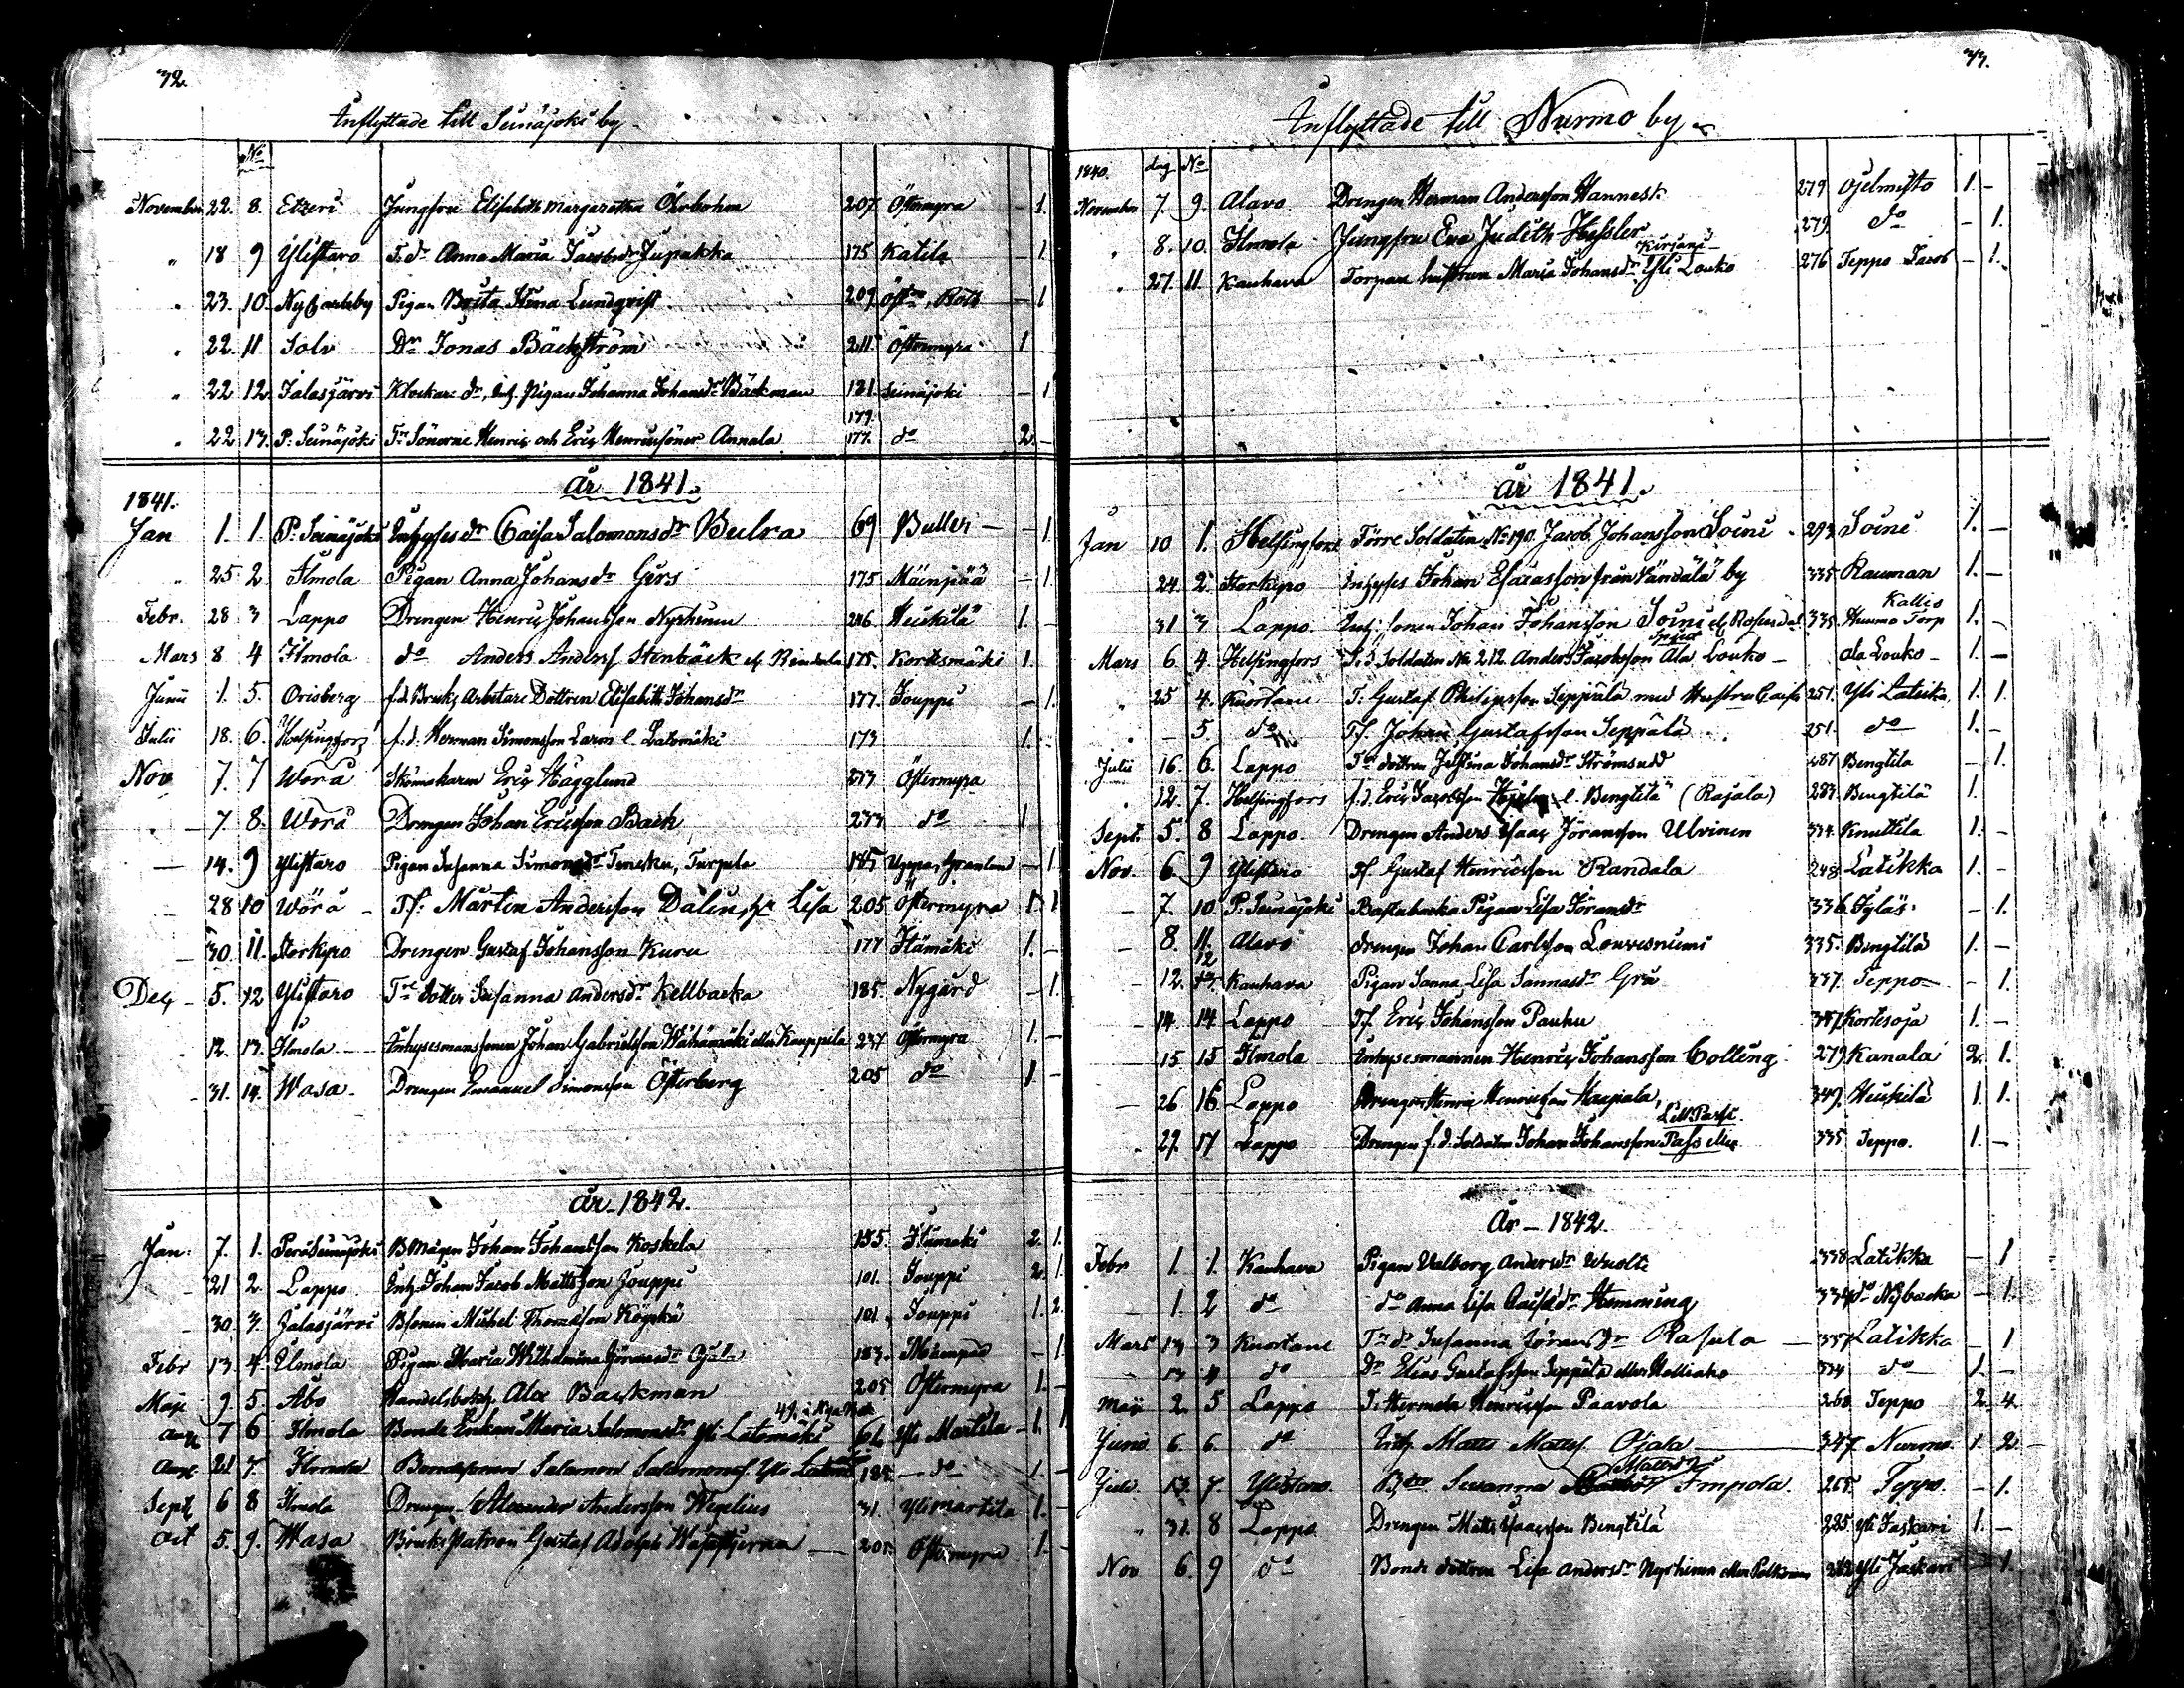 32.
Inflyttade till Seinäjoki by
No
November 22. 8. Etzeri Jungfru Elisabeth Margaretha Öhrbohm 207. Östermyra - 1.
" 18 9 Ylistaro T. dr Anna Maria Jacobsdr Jupakka 175 Katila - 1
" 23. 10. NyCarleby Pigan Brita Stina Lundqvist 209 - 1
" 22. 11 Solv Dr Jonas Bäckström 211. Östermyra 1
" 22 12. Jalasjärvi Klockare dr, Pigan Johanna Johansdr Bäckman 181. Seinäjoki - 1
179.
" 22 13. P. Seinäjoki Tr Sönerne Henric och Eric Henricssöner Annala 177. do 2. -
år 1841.
1841.
Jan 1. 1. P. Seinäjoki Inhyses dr Caisa Salomonsdr Bulra 69 Bulleri - - 1
" 25 2. Ilmola Pigan Anna Johansdr Gers 175 Mäenpää - 1.
Febr. 28 3 Lappo Drengen Henric Johansson Nyrhinen 246 Heikkilä 1. -
Mars 8 4 Ilmola do Anders Anderss Stenbäck el. Rindala 175. Kortesmäki 1.
Junii 1. 5. Orisberg f.d. Bruks Arbetare Dottren Elisabeth Johansdr 177. Jouppi - 1.
Julii 18. 6. Helsingfors f.d. Herman Simonsson Laron l. Latomäki 173 1. -
Nov 7. 7 Wörå Skomakaren Eric Hägglund 273 Östermyra
- 7. 8. Wörå Drengen Johan Ericsson Back 273 do 1
- 14. 9 Ylistaro Pigan Susanna Simonsdr Turpela 185 - 1
- 28 10 Wörå - Tf. Martin Andersson Dalin Lisa 205 Östermyra 1. 1
- 30. 11. Storkyro Drengen Gustaf Johansson Kuru 177 Ilämäki 1. -
Dec - 5. 12 Ylistaro Trs Dotter Susanna Andersdr Kellbacka 185. Nygård - 1.
" 12. 13. Ilmola - Inhysesmanssonen Johan Gabrielsson Wähämäki eller Kauppila 237 Östermyra 1. -
- 31. 14. Wasa - Drengen Emanuel Simonsson Österberg 205 do 1. -
år - 1842.
Jan. 7. 1. PeräSeinäjoki Johan Johansson Koskela 155. Ilämäki 2. 1.
- 21 2. Lappo Inh. Johan Jacob Mattsson Jouppi 101. Jouppi 2. 1.
- 30. 3. Jalasjärvi Bsonen Michel Thomasson Köykkä 101. Jouppi 1. 2.
Febr 13. 4. Ilmola Pigan Maria Wilhelmina Göransdr Ojala 183. - 1
Maji 9 5. Åbo Alex Backman 205 Östermyra 1. -
Aug 7 6 Ilmola Bonde Enkan Maria Salomonsdr Yli Latomäki 66 Yli Martila - 1. 1
Aug. 21 7. Ilmola Bondesonen Salomon Salomonss. Yli 185. - do 1. -
Sept 6 8 Ilmola Drengen Alexander Andersson Wegelius 31. Ylimartila 1. -
Oct 5. 9. Wasa Bruks Patron Gustaf Adolph Wasastjerna 205. Östermyra 1. -
33.
Inflyttade till Nurmo by
1840. dag No
November 7. 9. Alavo Drengen Herman Andersson Hannesk 279 Ojelmisto 1. -
" 8. 10. Ilmola Jungfru Eva Judith Hessler 279. do - 1.
Kirjani
" 27. 11. Kauhava Torpare hustrun Maria Johansdr Yli Louko 276 Seppo Jacob - 1.
år 1841.
Jan 10 1. Helsingfors Förre Soldaten No 190. Jacob Johansson Soini 293. Soini 1. -
24. 2. Storkyro Inhyses Johan Esaiasson från by 335. Rauman 1. -
31 3 Lappo Johan Johansson Soini 335. Kallio 1. -
Mars 6. 4. Helsingfors f.d. Soldaten No 212 Anders Jacobsson Ala Louko - Ala Louko - 1. -
" 25 4. Kuortane T. Gustaf Philipsson Seppälä med Hustru Caisa 251. Yli Latikka 1. 1.
- 5 do Tf. Johan Gustafsson Seppälä 251. do 1. -
Julii 16. 6. Lappo Tr dottren Justina Johansdr Strömsudd 287 Bengtila - 1.
" 12. 7. Helsingfors f.d. Eric Jacobsson l. Bengtilä (Rajala) 287. Bengtilä 1.
Sept. 5. 8 Lappo Drengen Anders Isaac Jöransson Ulvinen 334. Knuttila 1. -
Nov. 6. 9 Ylistaro Tf Gustaf Henricsson Randala 248 Latikka 1. -
- 7. 10. P. Seinäjoki Pigan Lisa Jöransdr 336. Syläs. - 1.
- 8. 11. Alavo Drengen Johan Carlsson Louvesniemi 335. Bengtilä 1. -
12
- 12. 13. Kauhava Pigan Sanna Lisa Sannasdr Grå 337. Seppo - - 1.
- 14. 14. Lappo Tf. Eric Johansson Pauhu 351 Kortesoja 1. -
15 15 Ilmola Inhysesmannen Henric Johansson Colling 279. Kanala 2. 1.
- 26 16. Lappo Drengen Henric Henricsson Haapala 349. Heikkilä 1. 1.
" 29. 17 Lappo Drengen f.d. Soldaten Johan Johansson Pass eller 335 Seppo. 1. -
År - 1842.
Febr 1. 1. Kauhava Pigan Valborg Andersdr Wuolti 338 Latikka - 1
- 1. 2 do do Anna Lisa Caisasdr Hemming 334 do Nybacka - 1.
Mars 13 3 Kuortane Tr dr Susanna Jöransdr Rasula - 357 Latikka - 1
13 4 do Dr Elias Gustafsson Seppälä eller 334 do 1. -
Maij 2. 5 Lappo T. Hermelin Henricsson Paavola 268 Seppo 2. 4.
Juni 6. 6. do Inh Matts Matts. Ojala 347. Nurmo 1. 2.
Mattsdr
Juli 13. 7. Ylistaro Susanna Impola 265. Seppo - 1.
" 31. 8 Lappo Drengen Matts Isaacsson Bengtilä 285 Yli Jaskari 1. -
Nov 6. 9 do Bonde dottren Lisa Andersdr Nyrhinen eller 282 Yli Jaskari - 1.